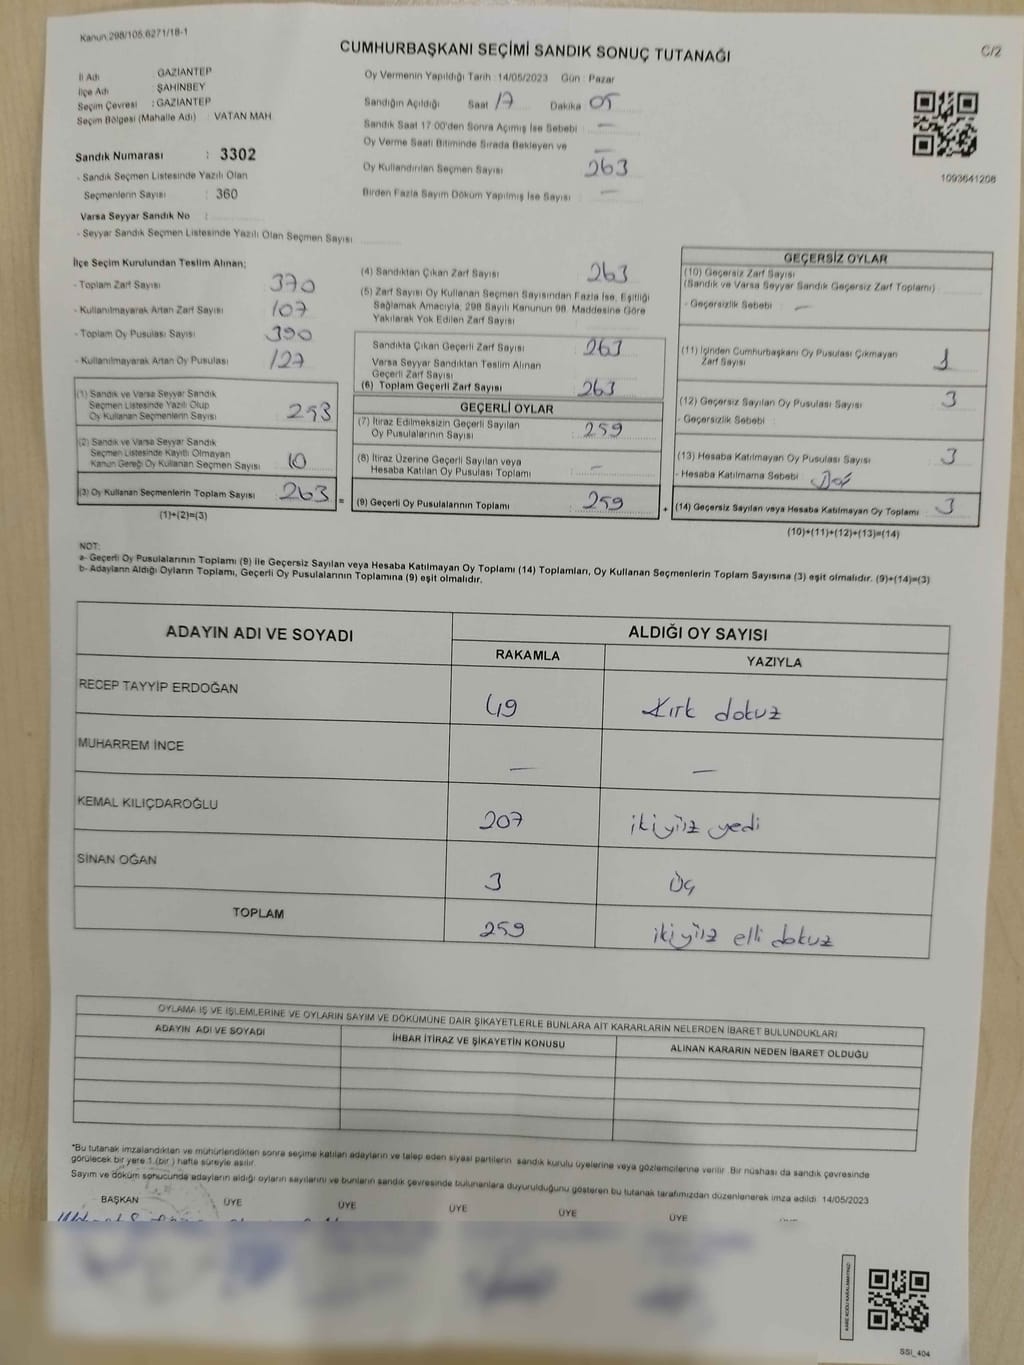 Kanun.298/105.6271/18-1
CUMHURBAŞKANI SEÇİMİ SANDIK SONUÇ TUTANAĞI
C/2
İl Adı GAZİANTEP
İlçe Adı ŞAHİNBEY
Seçim Çevresi : GAZİANTEP
Seçim Bölgesi (Mahalle Adı) VATAN MAH
Sandık Numarası : 3302
- Sandık Seçmen Listesinde Yazılı Olan
Seçmenlerin Sayısı : 360
Varsa Seyyar Sandık No :
- Seyyar Sandık Seçmen Listesinde Yazılı Olan Seçmen Sayısı
Oy Vermenin Yapıldığı Tarih : 14/05/2023 Gün : Pazar
Sandığın Açıldığı Saat 17 Dakika 05
Sandık Saat 17:00'den Sonra Açımış İse Sebebi : —
Oy Verme Saati Bitiminde Sırada Bekleyen ve —
Oy Kullandırılan Seçmen Sayısı 263
Birden Fazla Sayım Döküm Yapılmış İse Sayısı : —
1093641208
İlçe Seçim Kurulundan Teslim Alınan;
- Toplam Zarf Sayısı 370
- Kullanılmayarak Artan Zarf Sayısı 107
- Toplam Oy Pusulası Sayısı 390
- Kullanılmayarak Artan Oy Pusulası 127
(1) Sandık ve Varsa Seyyar Sandık
Seçmen Listesinde Yazılı Olup
Oy Kullanan Seçmenlerin Sayısı 253
(2) Sandık ve Varsa Seyyar Sandık
Seçmen Listesinde Kayıtlı Olmayan
Kanun Gereği Oy Kullanan Seçmen Sayısı 10
(3) Oy Kullanan Seçmenlerin Toplam Sayısı 263
(1)+(2)=(3)
=
(4) Sandıktan Çıkan Zarf Sayısı 263
(5) Zarf Sayısı Oy Kullanan Seçmen Sayısından Fazla İse, Eşitliği
Sağlamak Amacıyla, 298 Sayılı Kanunun 98. Maddesine Göre
Yakılarak Yok Edilen Zarf Sayısı
Sandıkta Çıkan Geçerli Zarf Sayısı 263
Varsa Seyyar Sandıktan Teslim Alınan
Geçerli Zarf Sayısı
(6) Toplam Geçerli Zarf Sayısı 263
GEÇERLİ OYLAR
(7) İtiraz Edilmeksizin Geçerli Sayılan
Oy Pusulalarının Sayısı 259
(8) İtiraz Üzerine Geçerli Sayılan veya
Hesaba Katılan Oy Pusulası Toplamı —
(9) Geçerli Oy Pusulalarının Toplamı 259
+
GEÇERSİZ OYLAR
(10) Geçersiz Zarf Sayısı
(Sandık ve Varsa Seyyar Sandık Geçersiz Zarf Toplamı)
- Geçersizlik Sebebi : —
(11) İçinden Cumhurbaşkanı Oy Pusulası Çıkmayan
Zarf Sayısı 1
(12) Geçersiz Sayılan Oy Pusulası Sayısı 3
- Geçersizlik Sebebi :
(13) Hesaba Katılmayan Oy Pusulası Sayısı 3
- Hesaba Katılmama Sebebi
(14) Geçersiz Sayılan veya Hesaba Katılmayan Oy Toplamı 3
(10)+(11)+(12)+(13)=(14)
NOT:
a- Geçerli Oy Pusulalarının Toplamı (9) ile Geçersiz Sayılan veya Hesaba Katılmayan Oy Toplamı (14) Toplamları, Oy Kullanan Seçmenlerin Toplam Sayısına (3) eşit olmalıdır. (9)+(14)=(3)
b- Adayların Aldığı Oyların Toplamı, Geçerli Oy Pusulalarının Toplamına (9) eşit olmalıdır.
ADAYIN ADI VE SOYADI ALDIĞI OY SAYISI
RAKAMLA YAZIYLA
RECEP TAYYİP ERDOĞAN 49 Kırk dokuz
MUHARREM İNCE — —
KEMAL KILIÇDAROĞLU 207 ikiyüz yedi
SİNAN OĞAN 3 Üç
TOPLAM 259 ikiyüz elli dokuz
OYLAMA İŞ VE İŞLEMLERİNE VE OYLARIN SAYIM VE DÖKÜMÜNE DAİR ŞİKAYETLERLE BUNLARA AİT KARARLARIN NELERDEN İBARET BULUNDUKLARI
ADAYIN ADI VE SOYADI İHBAR İTİRAZ VE ŞİKAYETİN KONUSU ALINAN KARARIN NEDEN İBARET OLDUĞU
*Bu tutanak imzalandıktan ve mühürlendikten sonra seçime katılan adayların ve talep eden siyasi partilerin sandık kurulu üyelerine veya gözlemcilerine verilir. Bir nüshası da sandık çevresinde
görülecek bir yere 1 (bir ) hafta süreyle asılır.
Sayım ve döküm sonucunda adayların aldığı oyların sayılarını ve bunların sandık çevresinde bulunanlara duyurulduğunu gösteren bu tutanak tarafımızdan düzenlenerek imza edildi. 14/05/2023
BAŞKAN ÜYE ÜYE ÜYE ÜYE ÜYE
KARE KODU KARALAMAYINIZ!
SSI_404